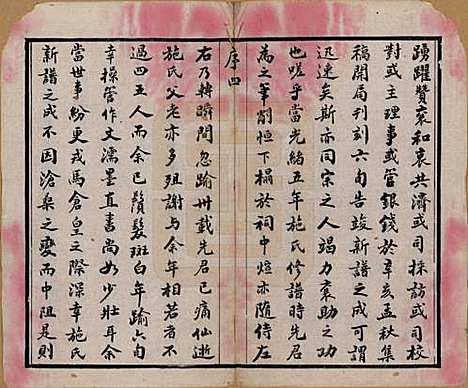 踴躍贊襄和衷共濟或司採訪或司校
對或主理事或管銀錢於辛亥孟秋集
稿開局刊刻六旬告竣新譜之成可謂
迅速矣斯亦同宗之人竭力襄助之功
也嗟乎當光緒五年施氏修譜時先君
為之筆削恒下榻於祠中煊亦隨侍左
序四
右乃轉瞬間忽踰卅載先君已痛仙逝
施氏父老亦多殂謝與余年相若者不
過四五人而余已鬚髮斑白年踰六旬
幸操管作文濡墨直書尚如少壯耳余
當世事紛更戎馬倉皇之際深幸施氏
新譜之成不因滄桑之變而中阻是則